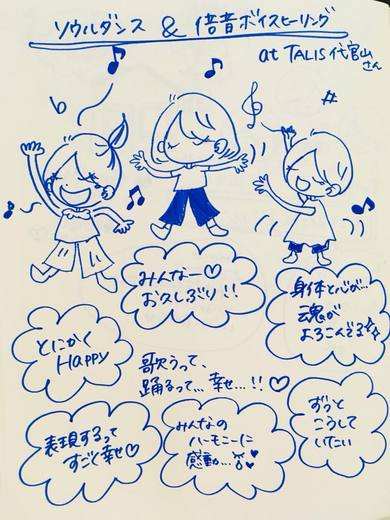 ソウルダンス & 倍音ボイスヒーリング
at TALIS代官山さん
みんなー♡
お久しぶり!!
身体と心が…
魂が
よろこんでる
とにかく
Happy
歌うって、
踊るって…幸せ…!!♡
表現するって
すごく幸せ♡
みんなの
ハーモニーに
感動…
ずっと
こうして
いたい